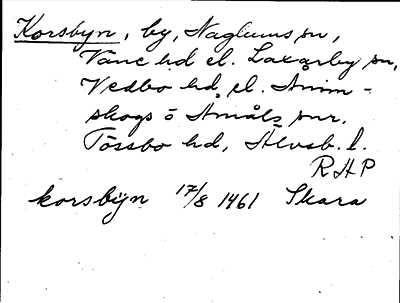 Korsbyn, by, Naglums sn,
Väne hd el. Laxarby sn,
Vedbo hd, el. Ånim-
skogs o Åmåls snr.
Tössbo hd, Älvsb. l.
RHP
korsbÿn 17/8 1461 Skara